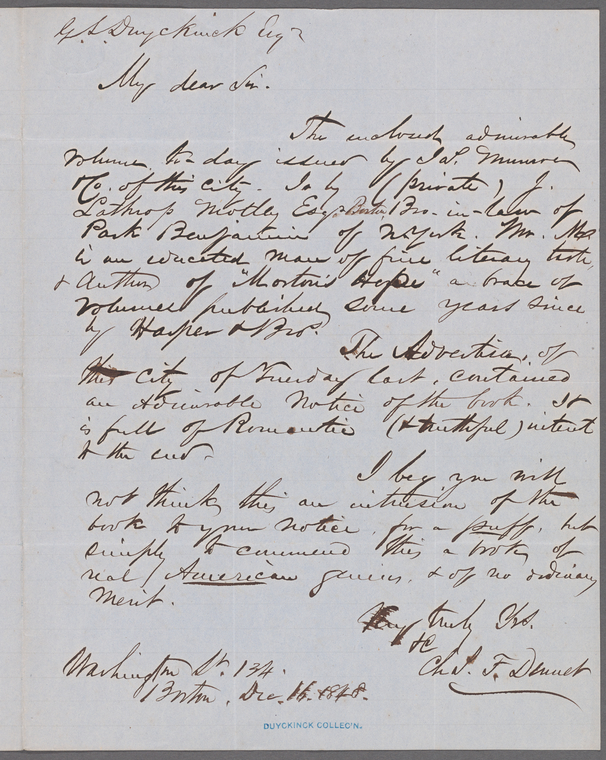 G. L. Duyckinck Esqr
My dear Sir.
The enclosed admirable
volume, to-day issued by Jas. Munroe
& Co. of this city. Is by (private) J.
Lathrop Motley Esqr. Boston Bro. in-law of
Park Benjamin of N York. Mr. M
is an educated man of fine literary taste,
& Author of "Morton's Hope" a brace of
volumes published some years since
by Harper & Bros.
The Advertiser, of
this city of Tuesday last, contained
an admirable notice of the book. It
is full of Romantic (& truthful) interest
to the end.
I beg you will
not think this an intrusion of the
book to your notice, for a puff, but
simply to commend this a book of
real American genius, & of no ordinary
merit.
Very truly Yrs.
&c
Chas. F. Dennet
Washington St. 134.
Boston, Dec. 16. 1848.
DUYCKINCK COLLEC'N.